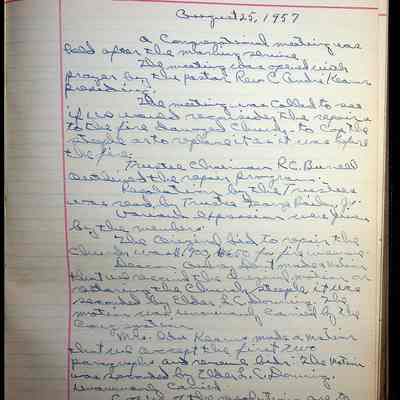 August 25, 1957
A Congregational meeting was
held after the morning service.
The meeting was opened with
prayer by the pastor Rev. C. Andre Kearns
presiding.
The meeting was called to see
if we would reconsider the repairs
to the fire damaged Church - to cap the
steeple or to replace it as it was before
the fire.
Trustee Chairman R.C. Bursell
the repair program.
Resolution by the Trustees
was read by Trustee George Jr.
Various expression were given
by the members.
The original bid to repair the
Church was
Deacon
that we the original motion on
restoring the Church steeple it was
seconded by Elder L. C. Downing. The
motion was unanimously carried by the
Congregation
Mrs. Ida Kearns made a motion
that we accept the first two
paragraphs and bid. The motion
was seconded by Elder L. C. Downing.
unanimously carried.
of the resolution are to